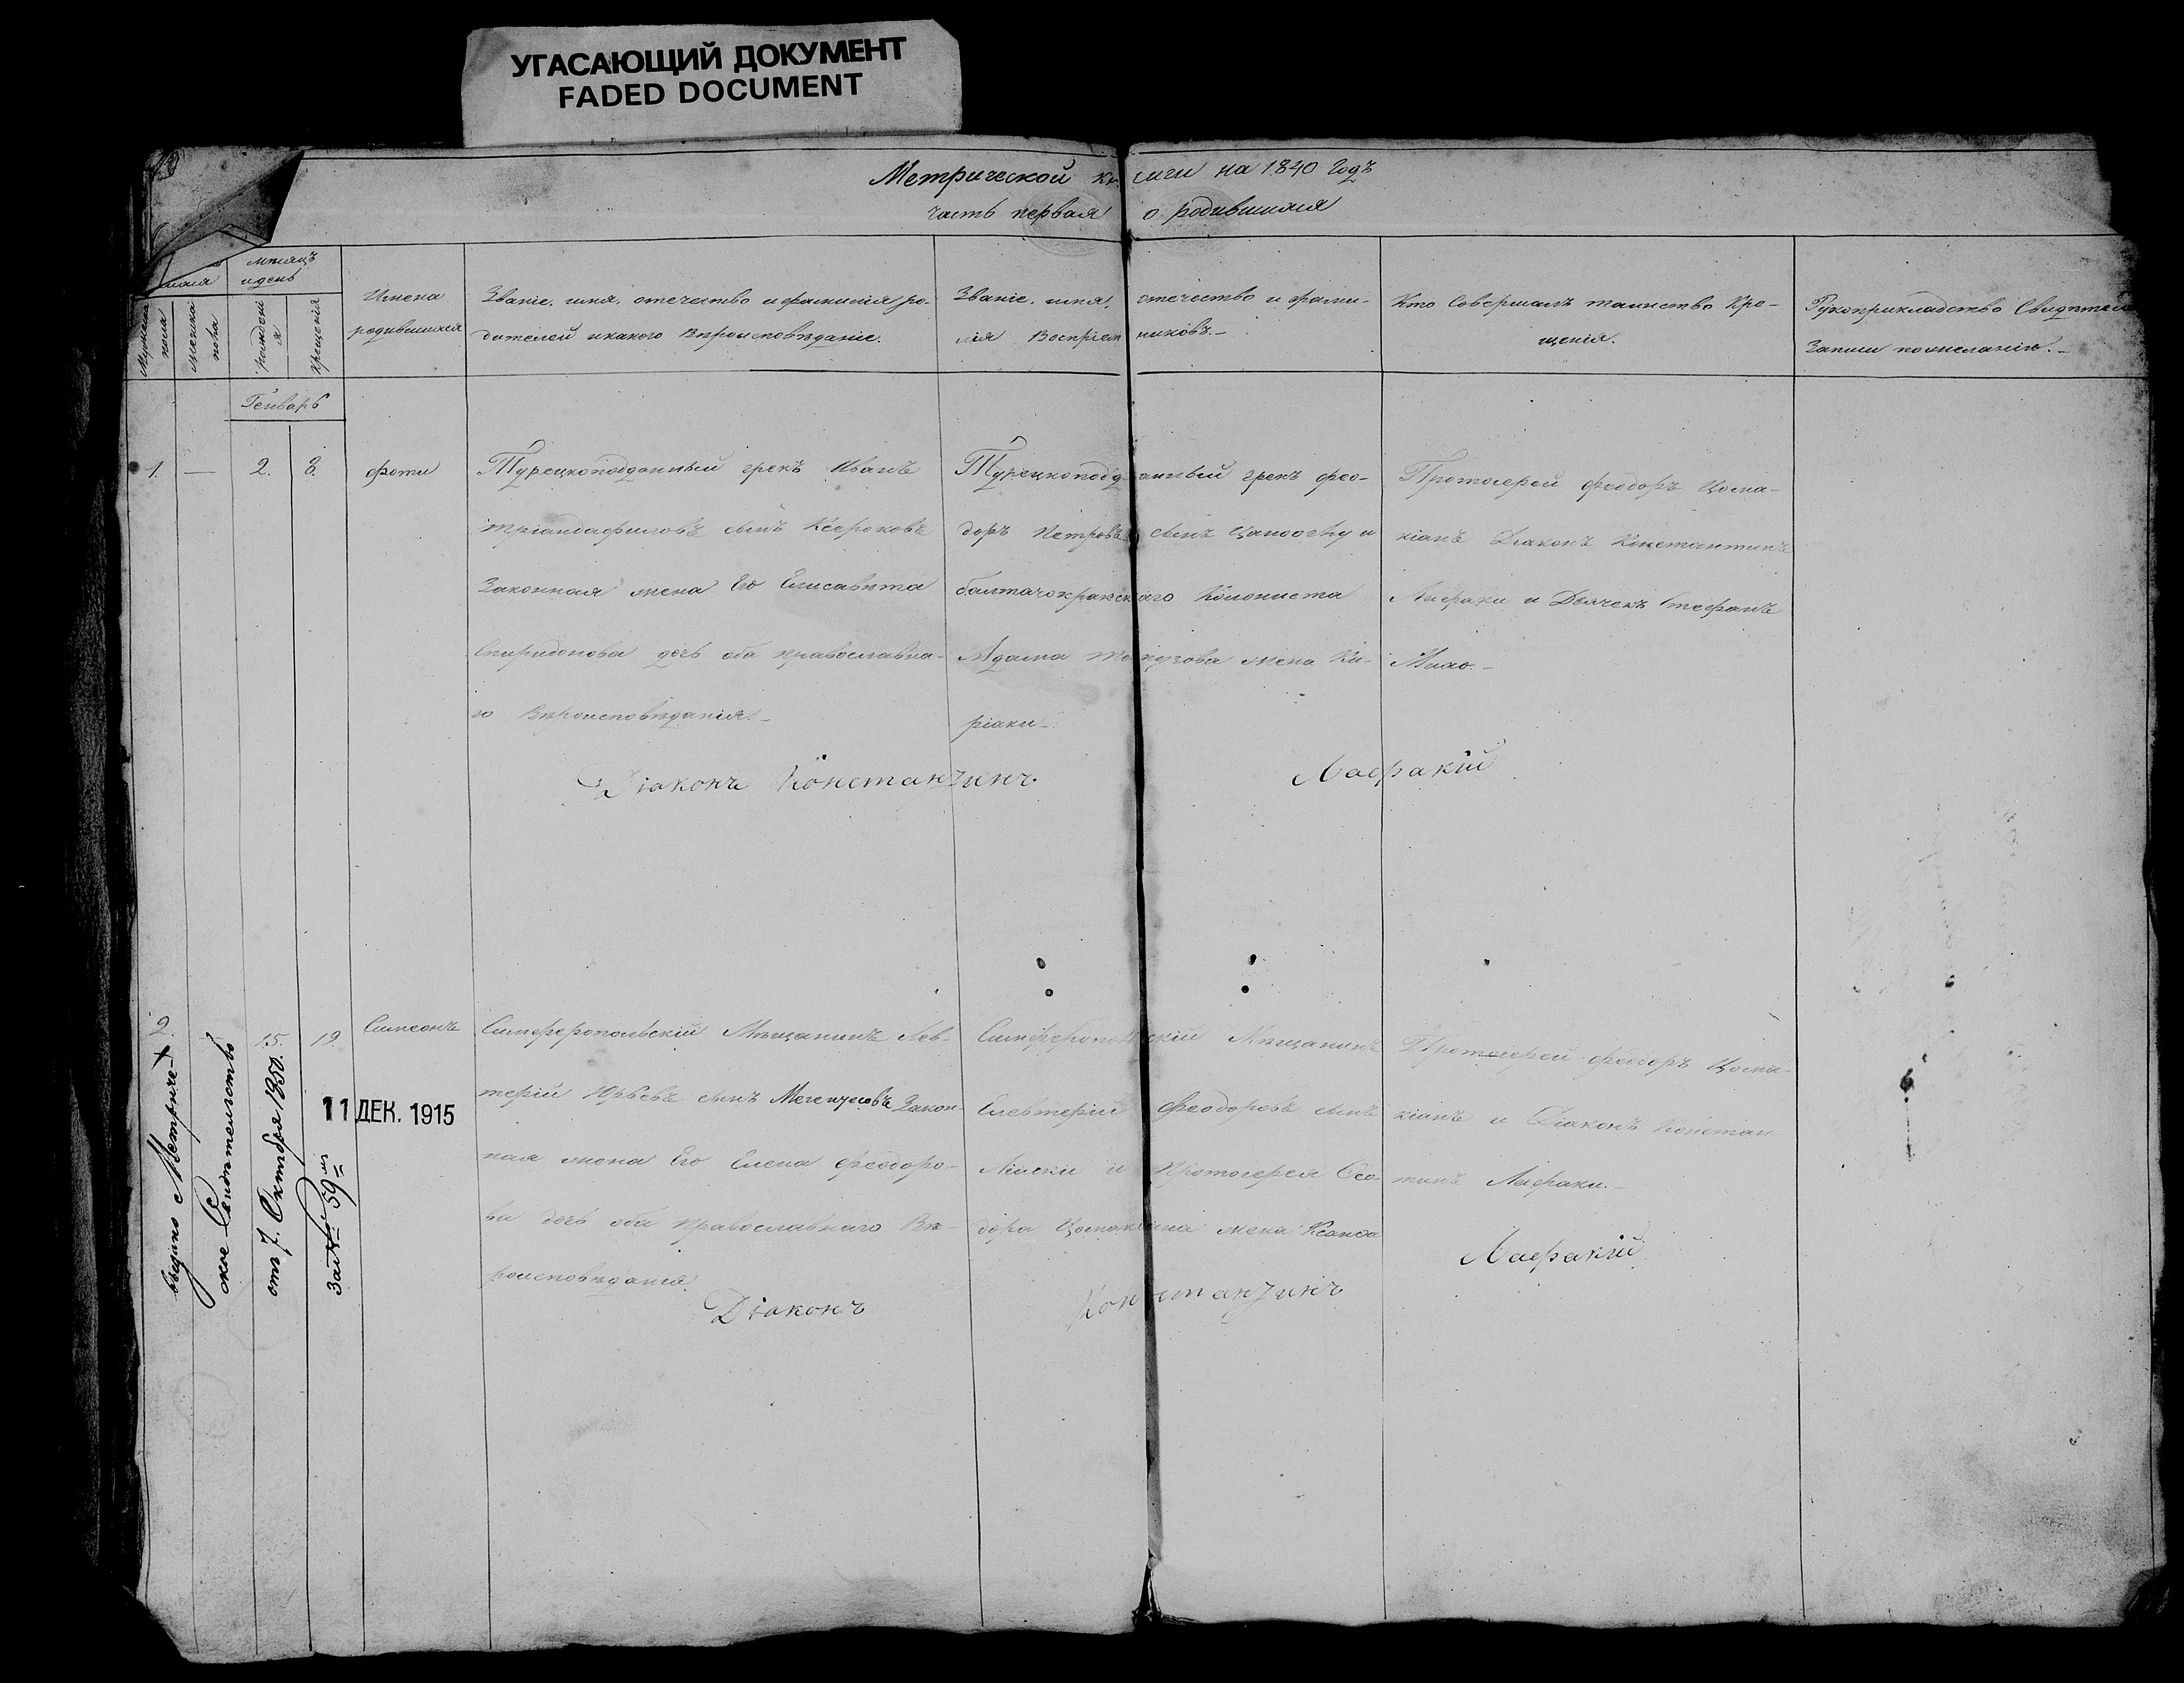 УГАСАЮЩИЙ ДОКУМЕНТ
FADED DOCUMENT
Метрической книги на 1840 Годъ
часть первая о родившихся
мѣсяцъ
и день
Мужеска пола
женска пола
рожденія
крещенія
Имена
родившихся
Званіе, имя, отечество и фамилія ро-
дителей и какого Вѣроисповѣданіе.
Званіе, имя, отечество и фами-
лія Воспріемниковъ.-
Кто Совершалъ таинство Кре-
щенія.
Рукоприкладство Свидѣтелей
Записи по желанію.-
Генварь
1. — 2. 8. Фоти
Турецкоподданный грекъ Иванъ
Тріандафиловъ сынъ
Законная жена Его Елисавета
Спиридонова дочь оба православна-
го Вѣроисповѣданія.-
Турецкоподданный грекъ Фео-
доръ Петровъ сынъ и
Колониста
Адама жена Ки-
ріаки-
Протоіерей Феодоръ Цома-
кіанъ Діаконъ Константинъ
Лафаки и Дьячекъ Стефанъ
Діаконъ Константинъ Лафакій
2. 15. 19. Симеонъ
Симферопольскій Мѣщанинъ Лев-
терій Юрьевъ сынъ Закон-
ная жена Его Елена Феодоро-
ва дочь оба православнаго Вѣ-
роисповѣданія
Симферопольскій Мѣщанинъ
Елевтерій Феодоровъ сынъ
и Протоіерея Фео-
дора Цомакіана жена
Протоіерей Феодоръ Цома-
кіанъ и Діаконъ Констан
тинъ Лафаки.-
Діаконъ Константинъ Лафакій
выдано Метриче-
ское Свидѣтельство
отъ 7. Октября 1850.
За № 59мъ
11 ДЕК. 1915